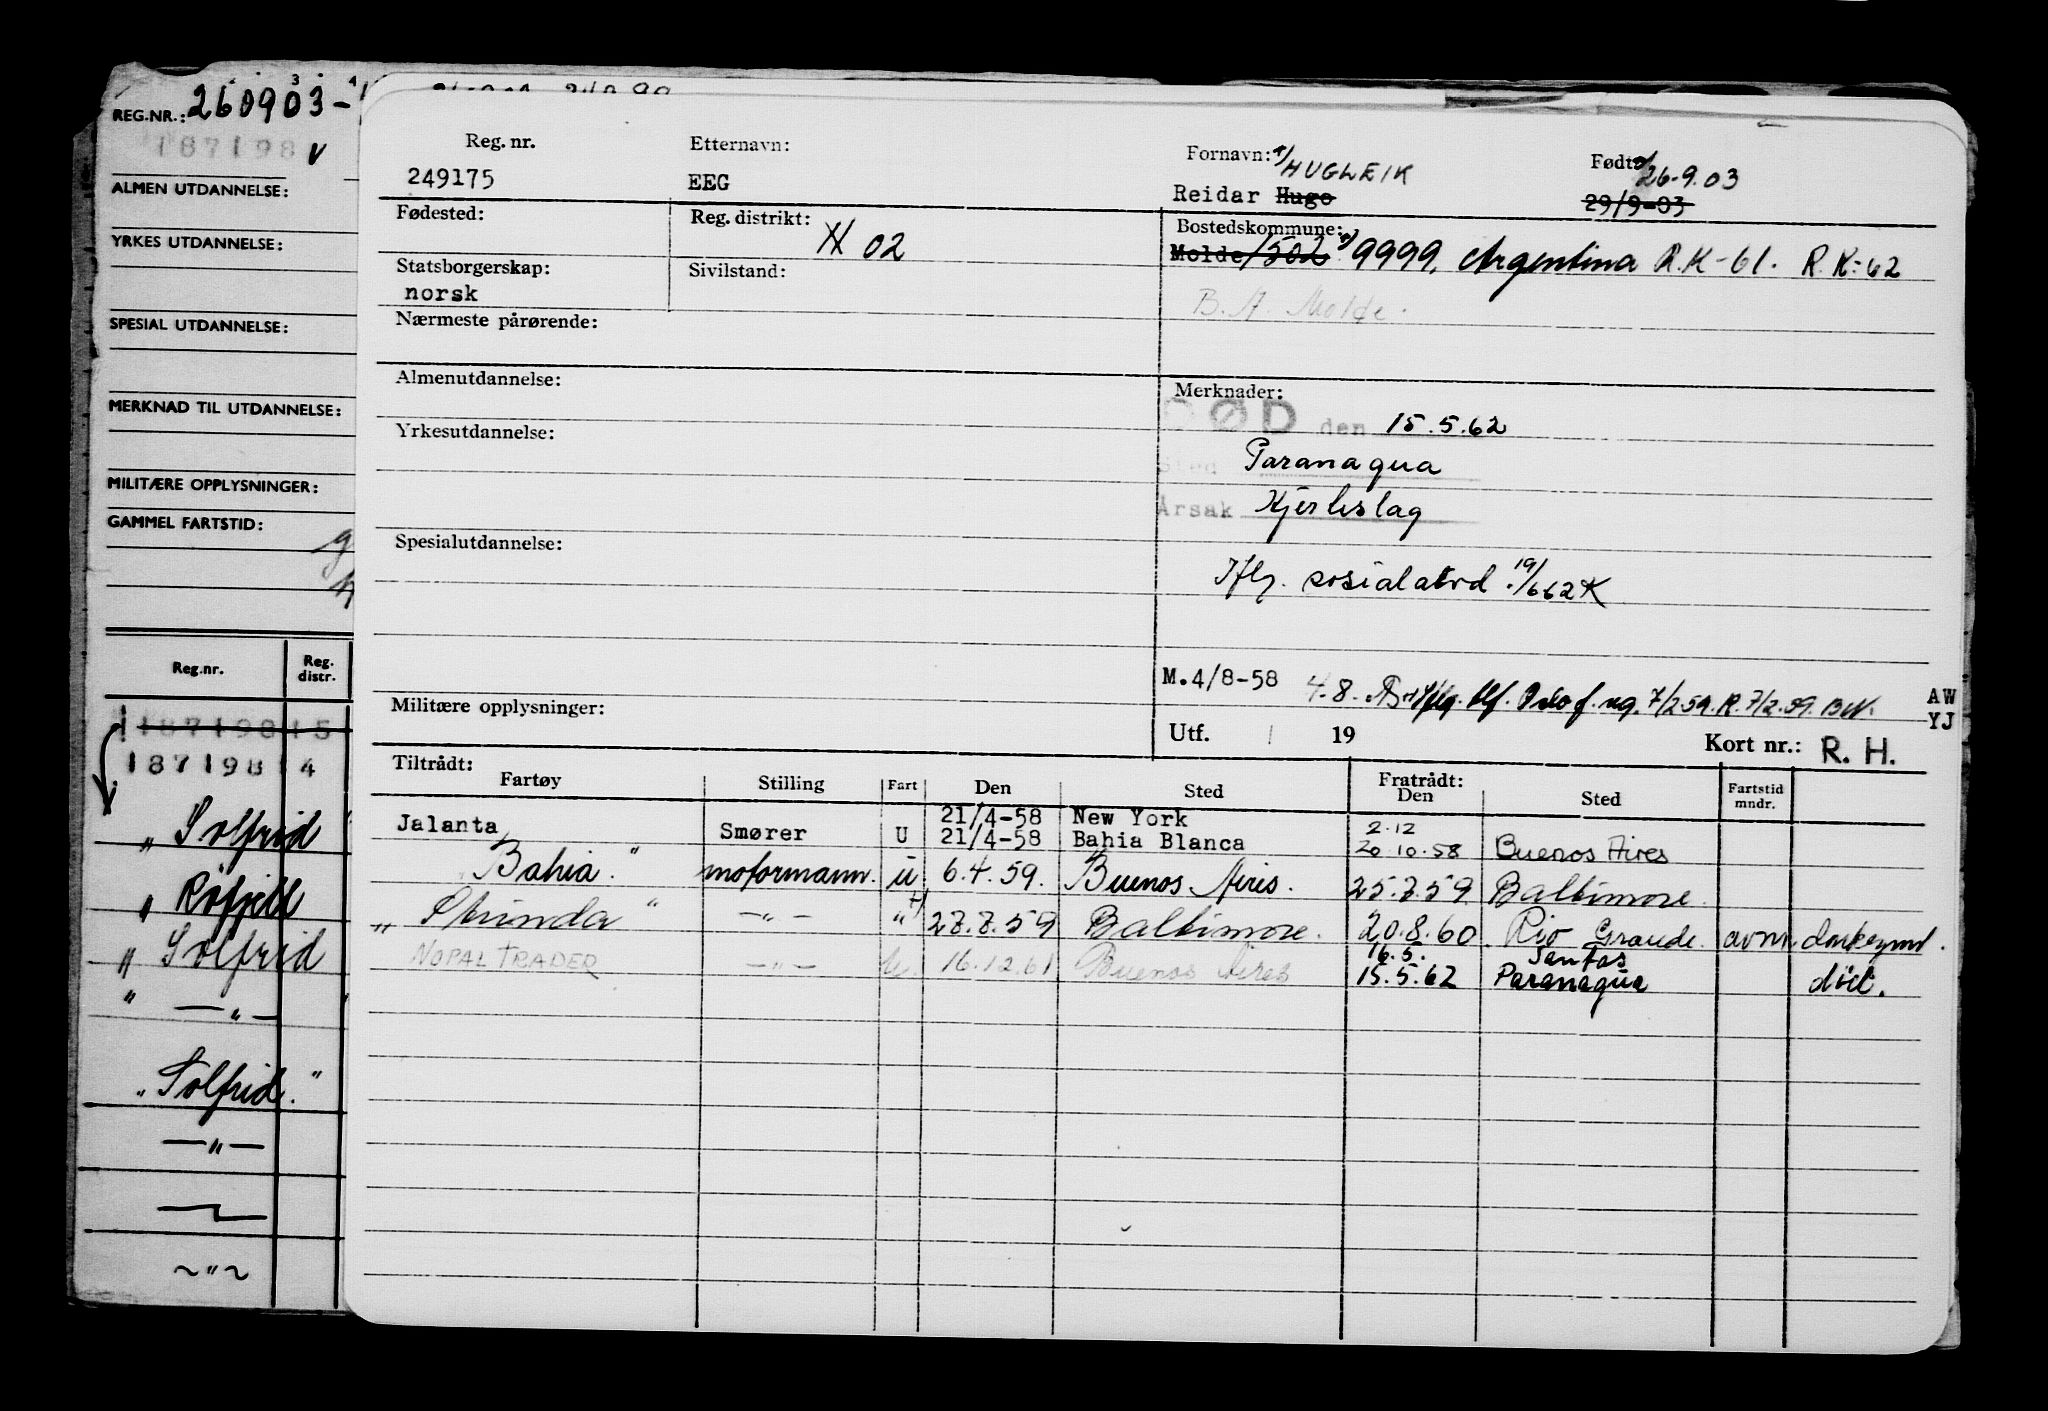 REG.NR.: 260903-
187198 v
ALMEN UTDANNELSE:
YRKES UTDANNELSE:
SPESIAL UTDANNELSE:
MERKNAD TIL UTDANNELSE:
MILITÆRE OPPLYSNINGER:
GAMMEL FARTSTID:
Reg.nr. Reg. distr.
187198 15
187198 14
" Solfrid
" Röfjell
" Solfrid
" — " —
" Solfrid. "
— " —
~ " ~
Reg. nr. Etternavn: Fornavn: Født:
HUGLEIK 26.9.03
249175 EEG Reidar Hugo 29/9-03
Fødested: Reg. distrikt: 02 Bostedskommune:
Molde/1502 9999, Argentina R.K-61. R.K-62
Statsborgerskap: Sivilstand:
norsk B.A. Molde.
Nærmeste pårørende:
Almenutdannelse: Merknader:
DØD den 15.5.62
Yrkesutdannelse:
Sted Paranaqua
Årsak Hjerteslag
Spesialutdannelse:
Iflg. sosialatd. 19/662 K
M.4/8-58 4.8. 7/2 59. R. 7/2.59. AW
Militære opplysninger: YJ
Utf. 19 Kort nr.: R. H.
Tiltrådt: Fratrådt:
Fartøy Stilling Fart Den Sted Den Sted Fartstid mndr.
21/4-58 New York 2.12
Jalanta Smører U 21/4-58 Bahia Blanca 20.10.58 Buenos Aires
"Bahia" motormann. u 6.4.59. Buenos Aires. 25.7.59 Baltimore.
" " — " — " 28.7.59 Baltimore. 20.8.60 Rio Grande. avm
16.5. Santos
NOPAL TRADER — " — u. 16.12.61 Buenos Aires 15.5.62 Paranaqua död.